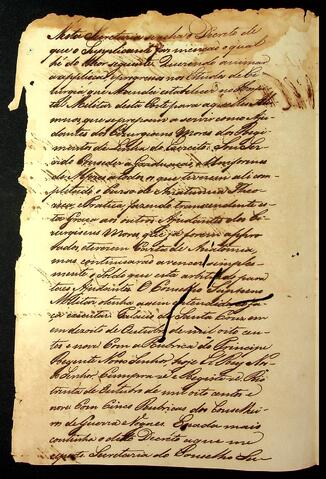 Nesta Secretaria se acha o Decreto de
que o Supplicante faz menção o qual
hé do theor seguinte. Querendo animar
a applicação e progressos nos Estudos de Ci-
rurgia, que Mandei estabelecer no Hospi-
tal Militar desta Corte para aquelles Alu-
mnos que se propoem a servir como Aju-
dantes de Cirurgiens Mores dos Regi-
mentos de Linha do Exercito: Sou Ser-
vido Conceder a Graduação e Uniforme
de Alferes a todos, os que tiverem assim com-
pletado o Curso de Anatomia Theo-
rica, e Pratica, fazendo transcendente es-
ta Graça aos outros Ajudantes dos Ci-
rurgioens Mores, que já forem appro-
vados, e tiverem Carta de Anatomia,
mas, continuarão a vencer simples-
mente o Soldo que está arbitrado para
taes Ajudantes. O Conselho Supremo
Militar o tenha assim entendido e o fa-
ça executar. Palacio de Santa Cruz
em dezoito de Outubro de mil oito cen-
tos e nove. Com a Rubrica do Principe
Regente Nosso Senhor, hoje El Rey Nos-
so Senhor. Cumpra-se e Registe-se. Rio
trinta de Outubro de mil oito centos e
nove Com Cinco Rubricas dos Conselhei-
ros de Guerra e Vogaes. E nada mais
continha o dito Decreto a que me
reporto. Secretaria do Conselho Su-